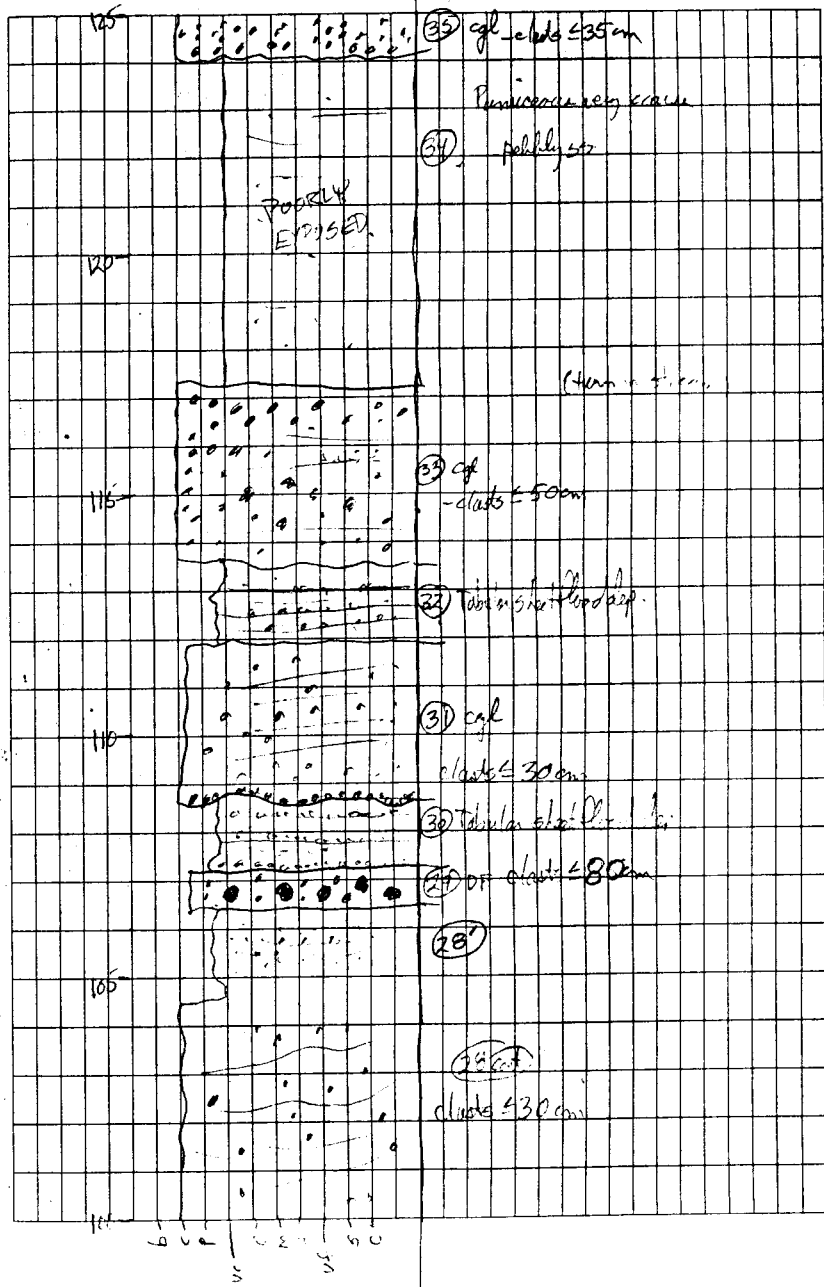 125
35 cgl - clasts ≤35cm
Pumiceous very coarse
34 Pebbly ss
POORLY
EXPOSED.
120
33 cgl
115
- clasts ≤50cm
32 Tabular sheetflood dep.
31 cgl
110
clasts ≤ 30cm
30 Tabular sheetflood
29 DF clasts ≤80cm
28'
105
28
clasts ≤30cm
b c p vc c m f vf